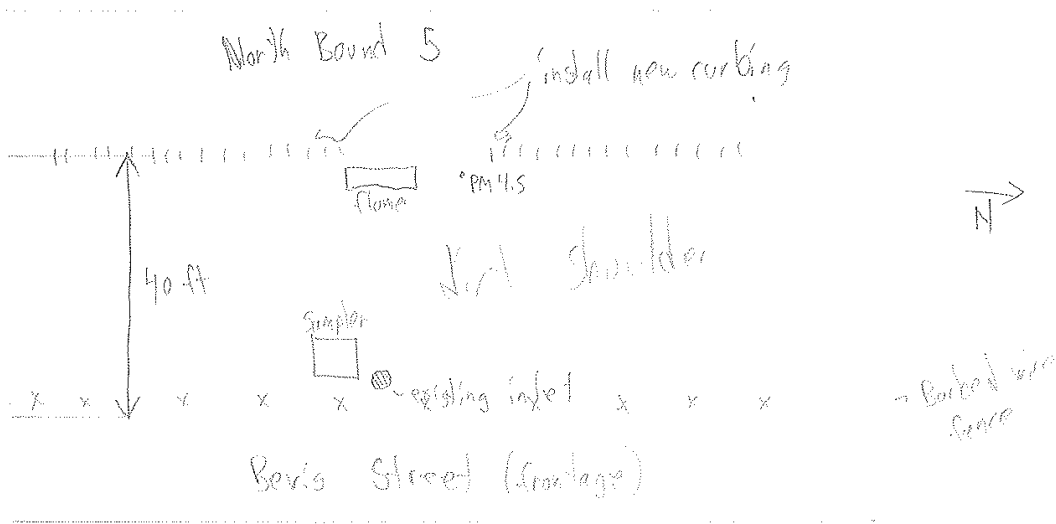 North Bound 5
install new curbing
flume
PM 4.5
N
40 ft
Dirt Shoulder
Sampler
existing inlet
Barbed wire
fence
Street (frontage)